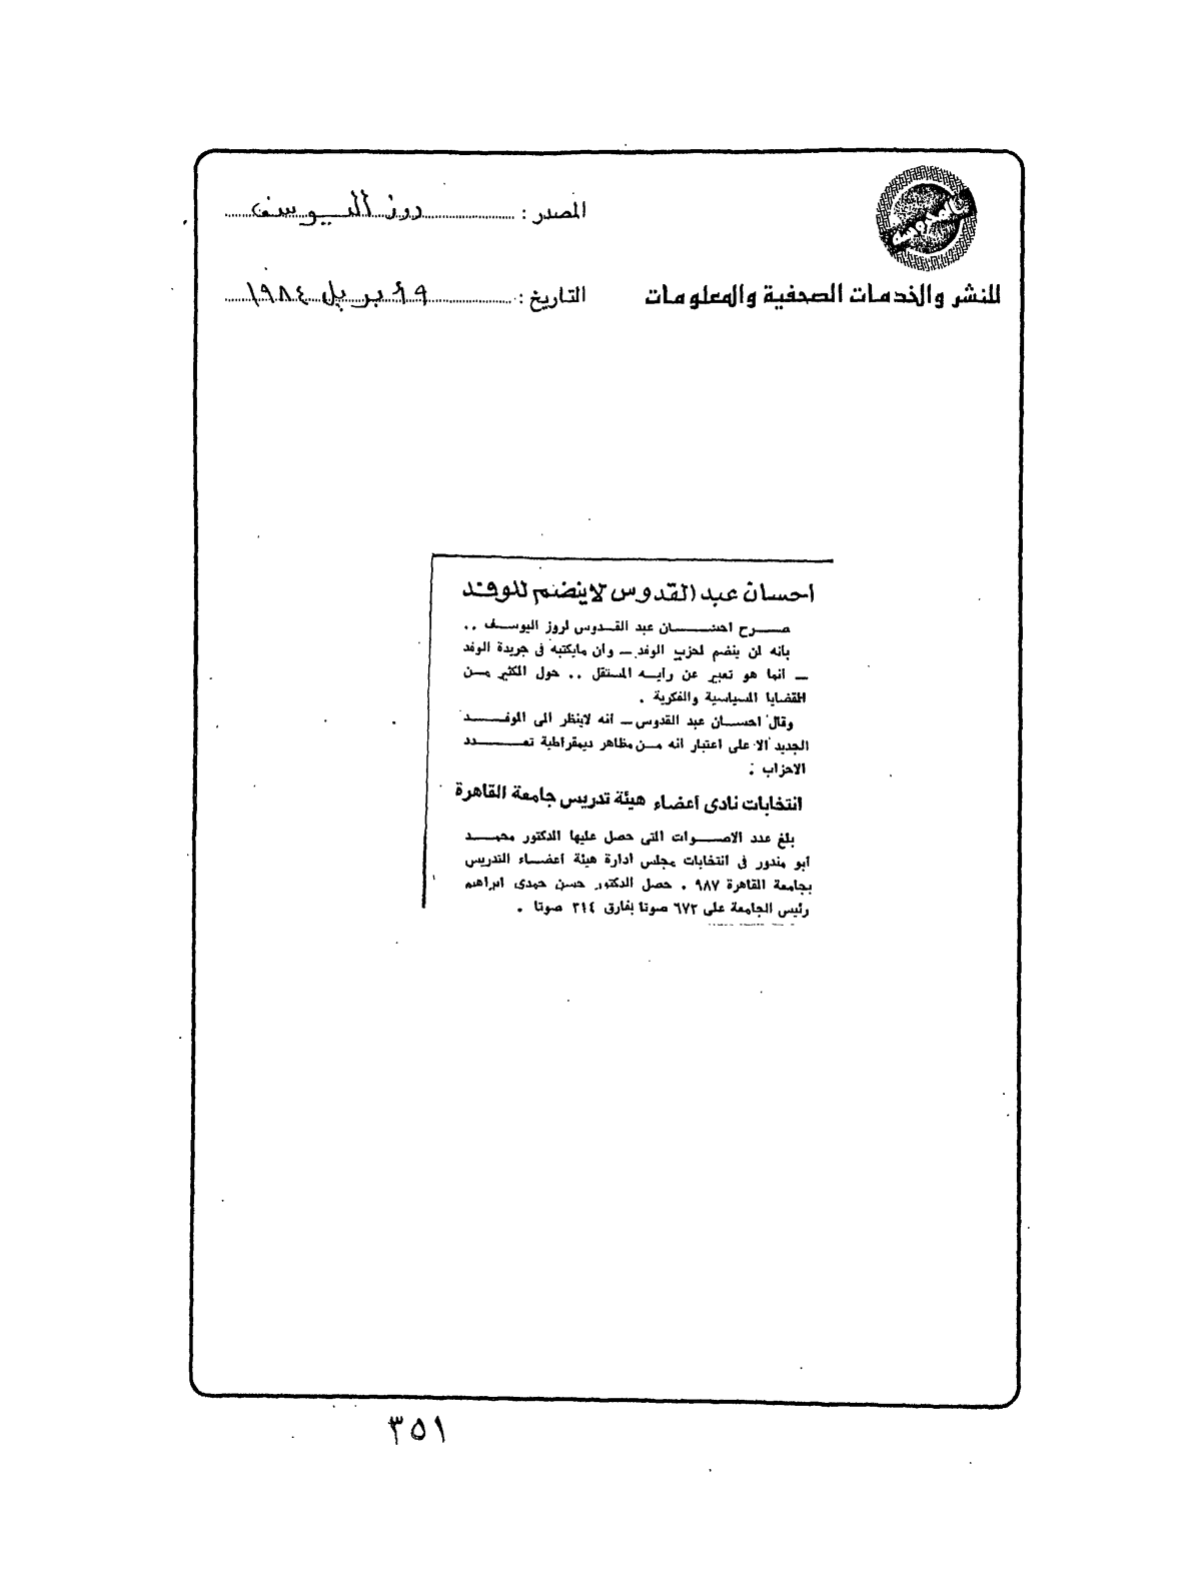 المدرسة
للنشر والخدمات الصحفية والمعلومات
المصدر : روز اليوسف
التاريخ : ٩ أبريل ١٩٨٤
احسان عبد القدوس لا ينضم للوفد
صرح احسان عبد القدوس لروز اليوسف ..
بانه لن ينضم لحزب الوفد ــ وان مايكتبه فى جريدة الوفد
ــ انما هو تعبير عن رأيه المستقل .. حول الكثير من
القضايا السياسية والفكرية .
وقال احسان عبد القدوس ــ انه لاينظر الى الوفد
الجديد الا على اعتبار انه من مظاهر ديمقراطية تعدد
الاحزاب .
انتخابات نادى اعضاء هيئة تدريس جامعة القاهرة
بلغ عدد الاصوات التى حصل عليها الدكتور محمد
أبو مندور فى انتخابات مجلس ادارة هيئة اعضاء التدريس
بجامعة القاهرة ٩٨٧ . حصل الدكتور حسن حمدى ابراهيم
رئيس الجامعة على ٦٧٣ صوتا بفارق ٣١٤ صوتا .
٣٥١